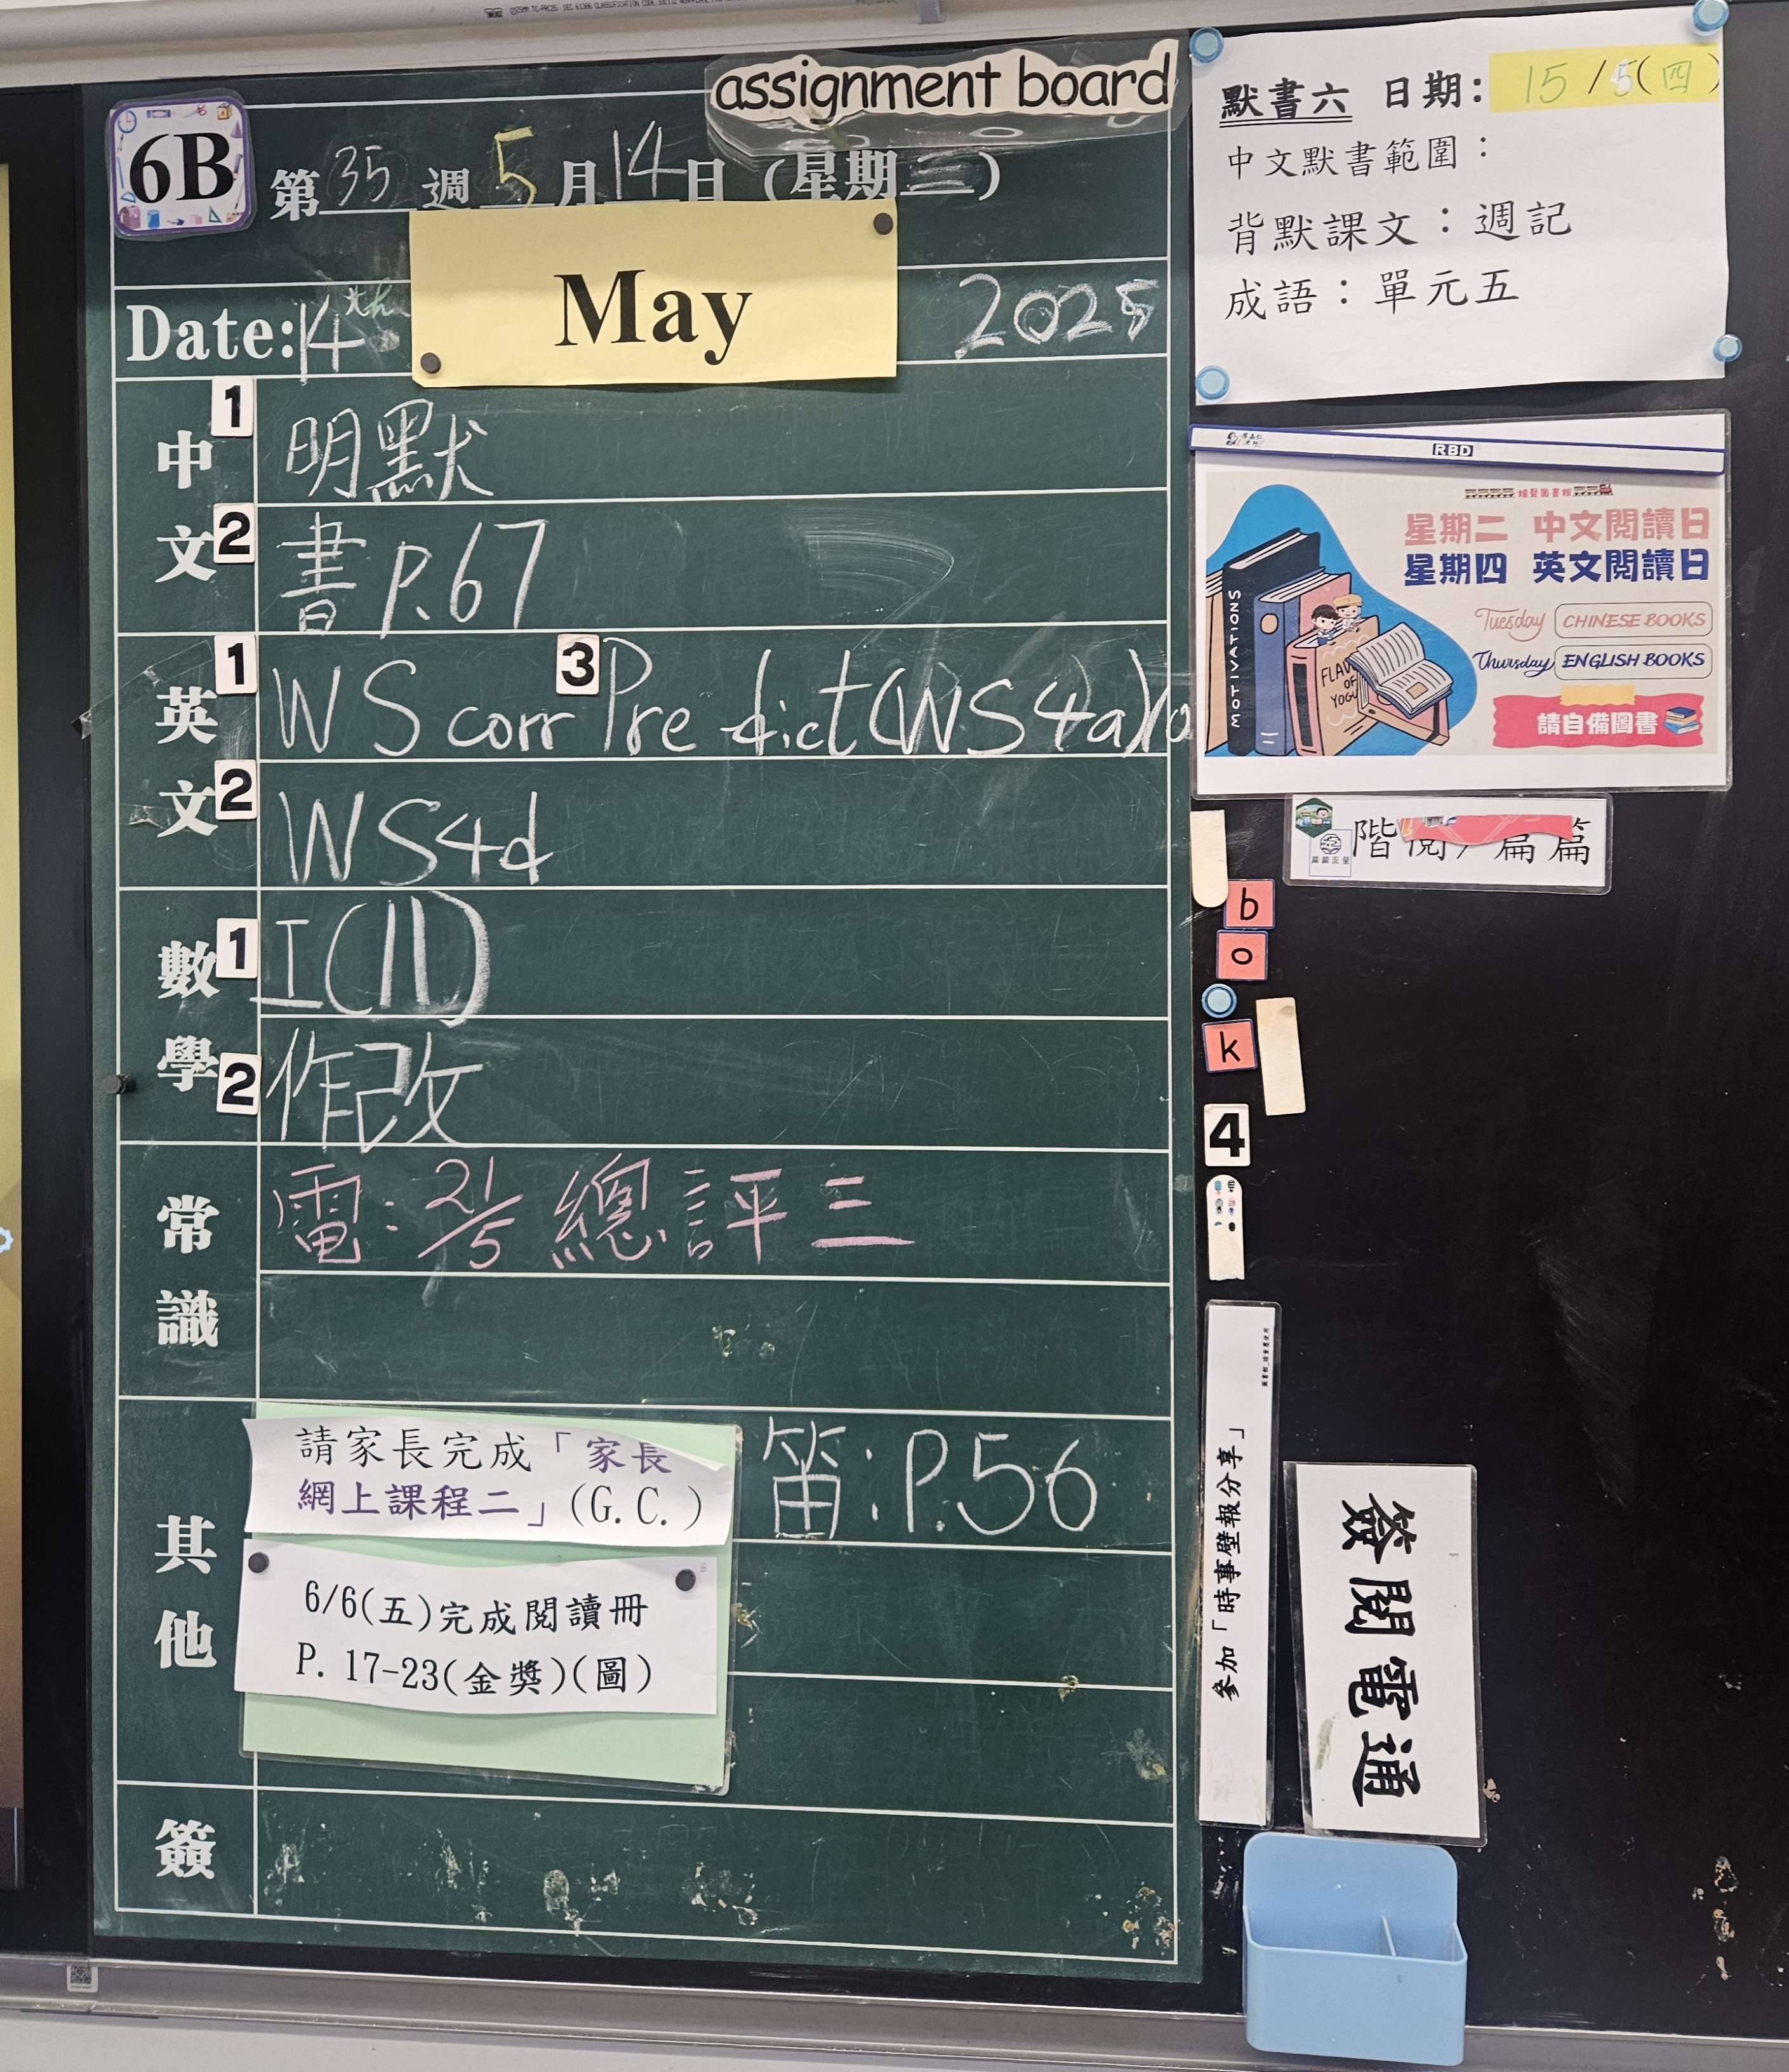 assignment board
6B
第35週5月14日(星期三)
Date: 14th May 2025
中文
1 明默
2 書P.67
英文
1 WS corr 3 Pre dict(WS4a)
2 WS4d
數學
1 I(11)
2 作改
常識
電: 21/5 總評三
其他
請家長完成「家長
網上課程二」(G.C.)
笛:P.56
6/6(五)完成閱讀冊
P. 17-23(金獎)(圖)
簽
默書六 日期: 15/5(四)
中文默書範圍:
背默課文:週記
成語:單元五
RBD
星期二 中文閱讀日
星期四 英文閱讀日
Tuesday CHINESE BOOKS
Thursday ENGLISH BOOKS
請自備圖書
MOTIVATIONS
FLAV
OF
YOGU
階閱/篇篇
b
o
k
4
參加「時事壁報分享」
簽閱電通